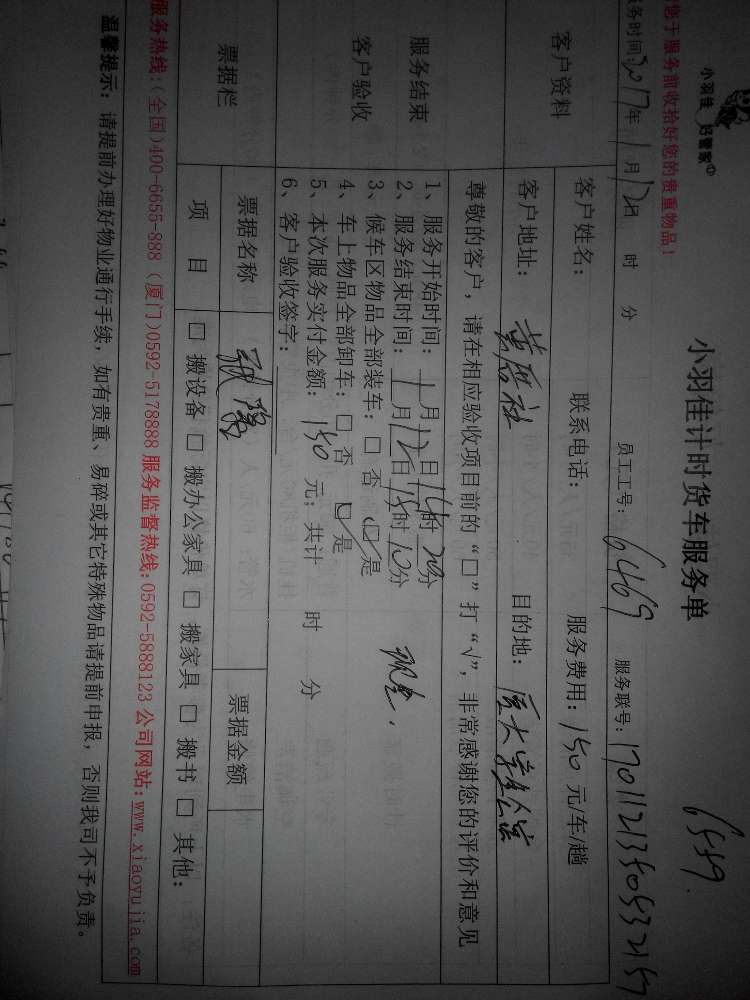 小羽佳 好管家
小羽佳计时货车服务单
6559.
您于服务前收拾好您的贵重物品！
务时间:2017年1月12日 时 分 员工工号:6469 服务联号:
客户资料
客户姓名: 联系电话: 服务费用:150元/车/趟
客户地址: 目的地:
尊敬的客户，请在相应验收项目前的“口”打“√”，非常感谢您的评价和意见
服务结束
客户验收
1、服务开始时间: 1月12日14时20分
2、服务结束时间: 1月12日15时10分
3、候车区物品全部装车: □ 否 ☑ 是
4、车上物品全部卸车: □ 否 ☑ 是
5、本次服务实付金额: 150 元；共计 时 分
6、客户验收签字:
票据栏
票据名称 票据金额
项 目 □ 搬设备 □ 搬办公家具 □ 搬家具 □ 搬书 □ 其他:
服务热线:(全国)400-6655-888 (厦门)0592-5178888 服务监督热线:0592-5888123 公司网站:www.xiaoyujia.com
温馨提示：请提前办理好物业通行手续，如有贵重、易碎或其它特殊物品请提前申报，否则我司不予负责。